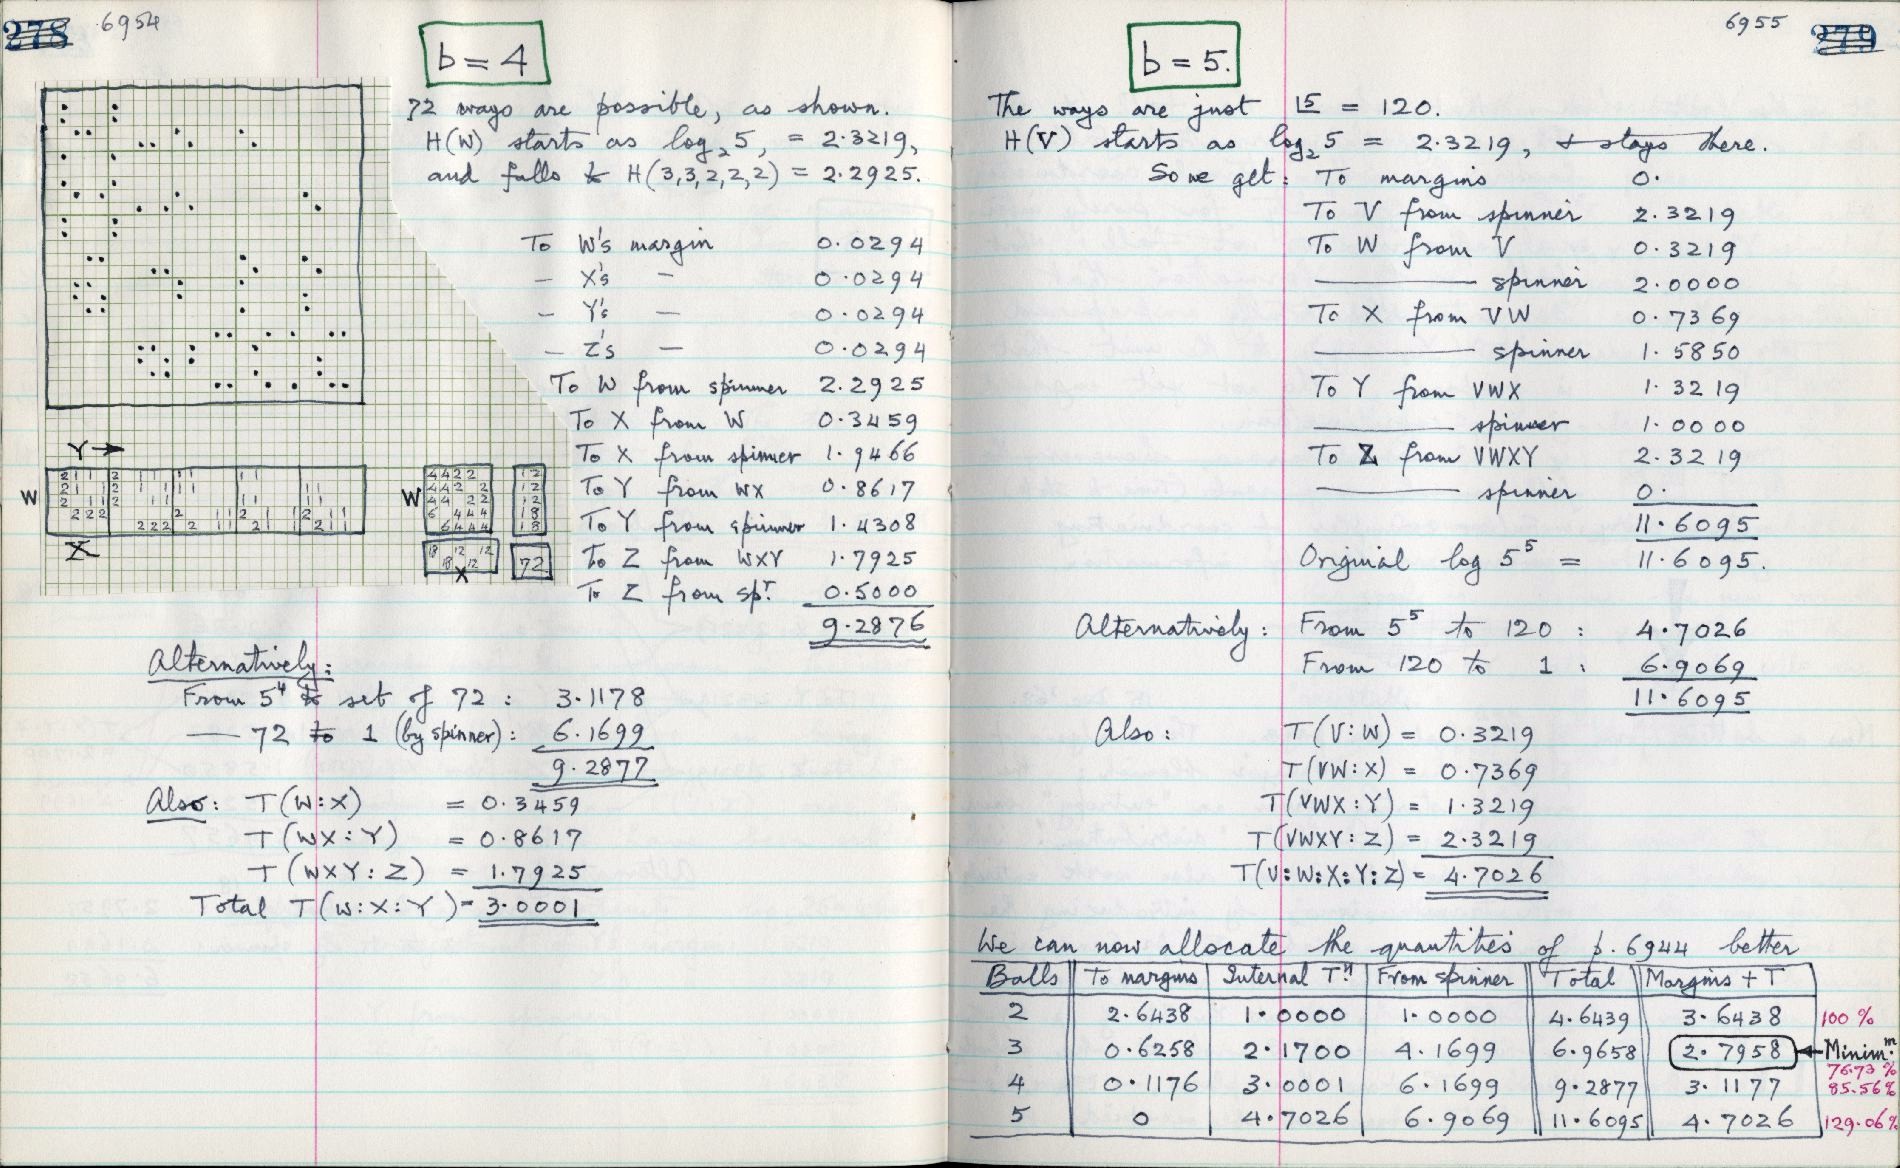 278 6954
b = 4
72 ways are possible, as shown.
H(W) starts as log₂5, = 2.3219,
and falls to H(3,3,2,2,2) = 2.2925.
To W's margin 0.0294
— X's — 0.0294
— Y's — 0.0294
— Z's — 0.0294
To W from spinner 2.2925
To X from W 0.3459
To X from spinner 1.9466
To Y from WX 0.8617
To Y from spinner 1.4308
To Z from WXY 1.7925
To Z from spʳ. 0.5000
9.2876
Y →
W
X
W
X
72
Alternatively:
From 5⁴ to set of 72 : 3.1178
— 72 to 1 (by spinner) : 6.1699
9.2877
Also: T(W:X) = 0.3459
T(WX:Y) = 0.8617
T(WXY:Z) = 1.7925
Total T(W:X:Y) = 3.0001
6955 279
b = 5.
The ways are just |5 = 120.
H(V) starts as log₂5 = 2.3219, & stays there.
So we get: To margins 0.
To V from spinner 2.3219
To W from V 0.3219
——— spinner 2.0000
To X from VW 0.7369
——— spinner 1.5850
To Y from VWX 1.3219
——— spinner 1.0000
To Z from VWXY 2.3219
——— spinner 0.
11.6095
Original log 5⁵ = 11.6095.
Alternatively: From 5⁵ to 120 : 4.7026
From 120 to 1 : 6.9069
11.6095
Also: T(V:W) = 0.3219
T(VW:X) = 0.7369
T(VWX:Y) = 1.3219
T(VWXY:Z) = 2.3219
T(V:W:X:Y:Z) = 4.7026
We can now allocate the quantities of p. 6944 better
Balls To margins Internal Tⁿ. From spinner Total Margins + T
2 2.6438 1.0000 1.0000 4.6439 3.6438 100%
3 0.6258 2.1700 4.1699 6.9658 2.7958 ← Minimᵐ. 76.73%
4 0.1176 3.0001 6.1699 9.2877 3.1177 85.56%
5 0 4.7026 6.9069 11.6095 4.7026 129.06%